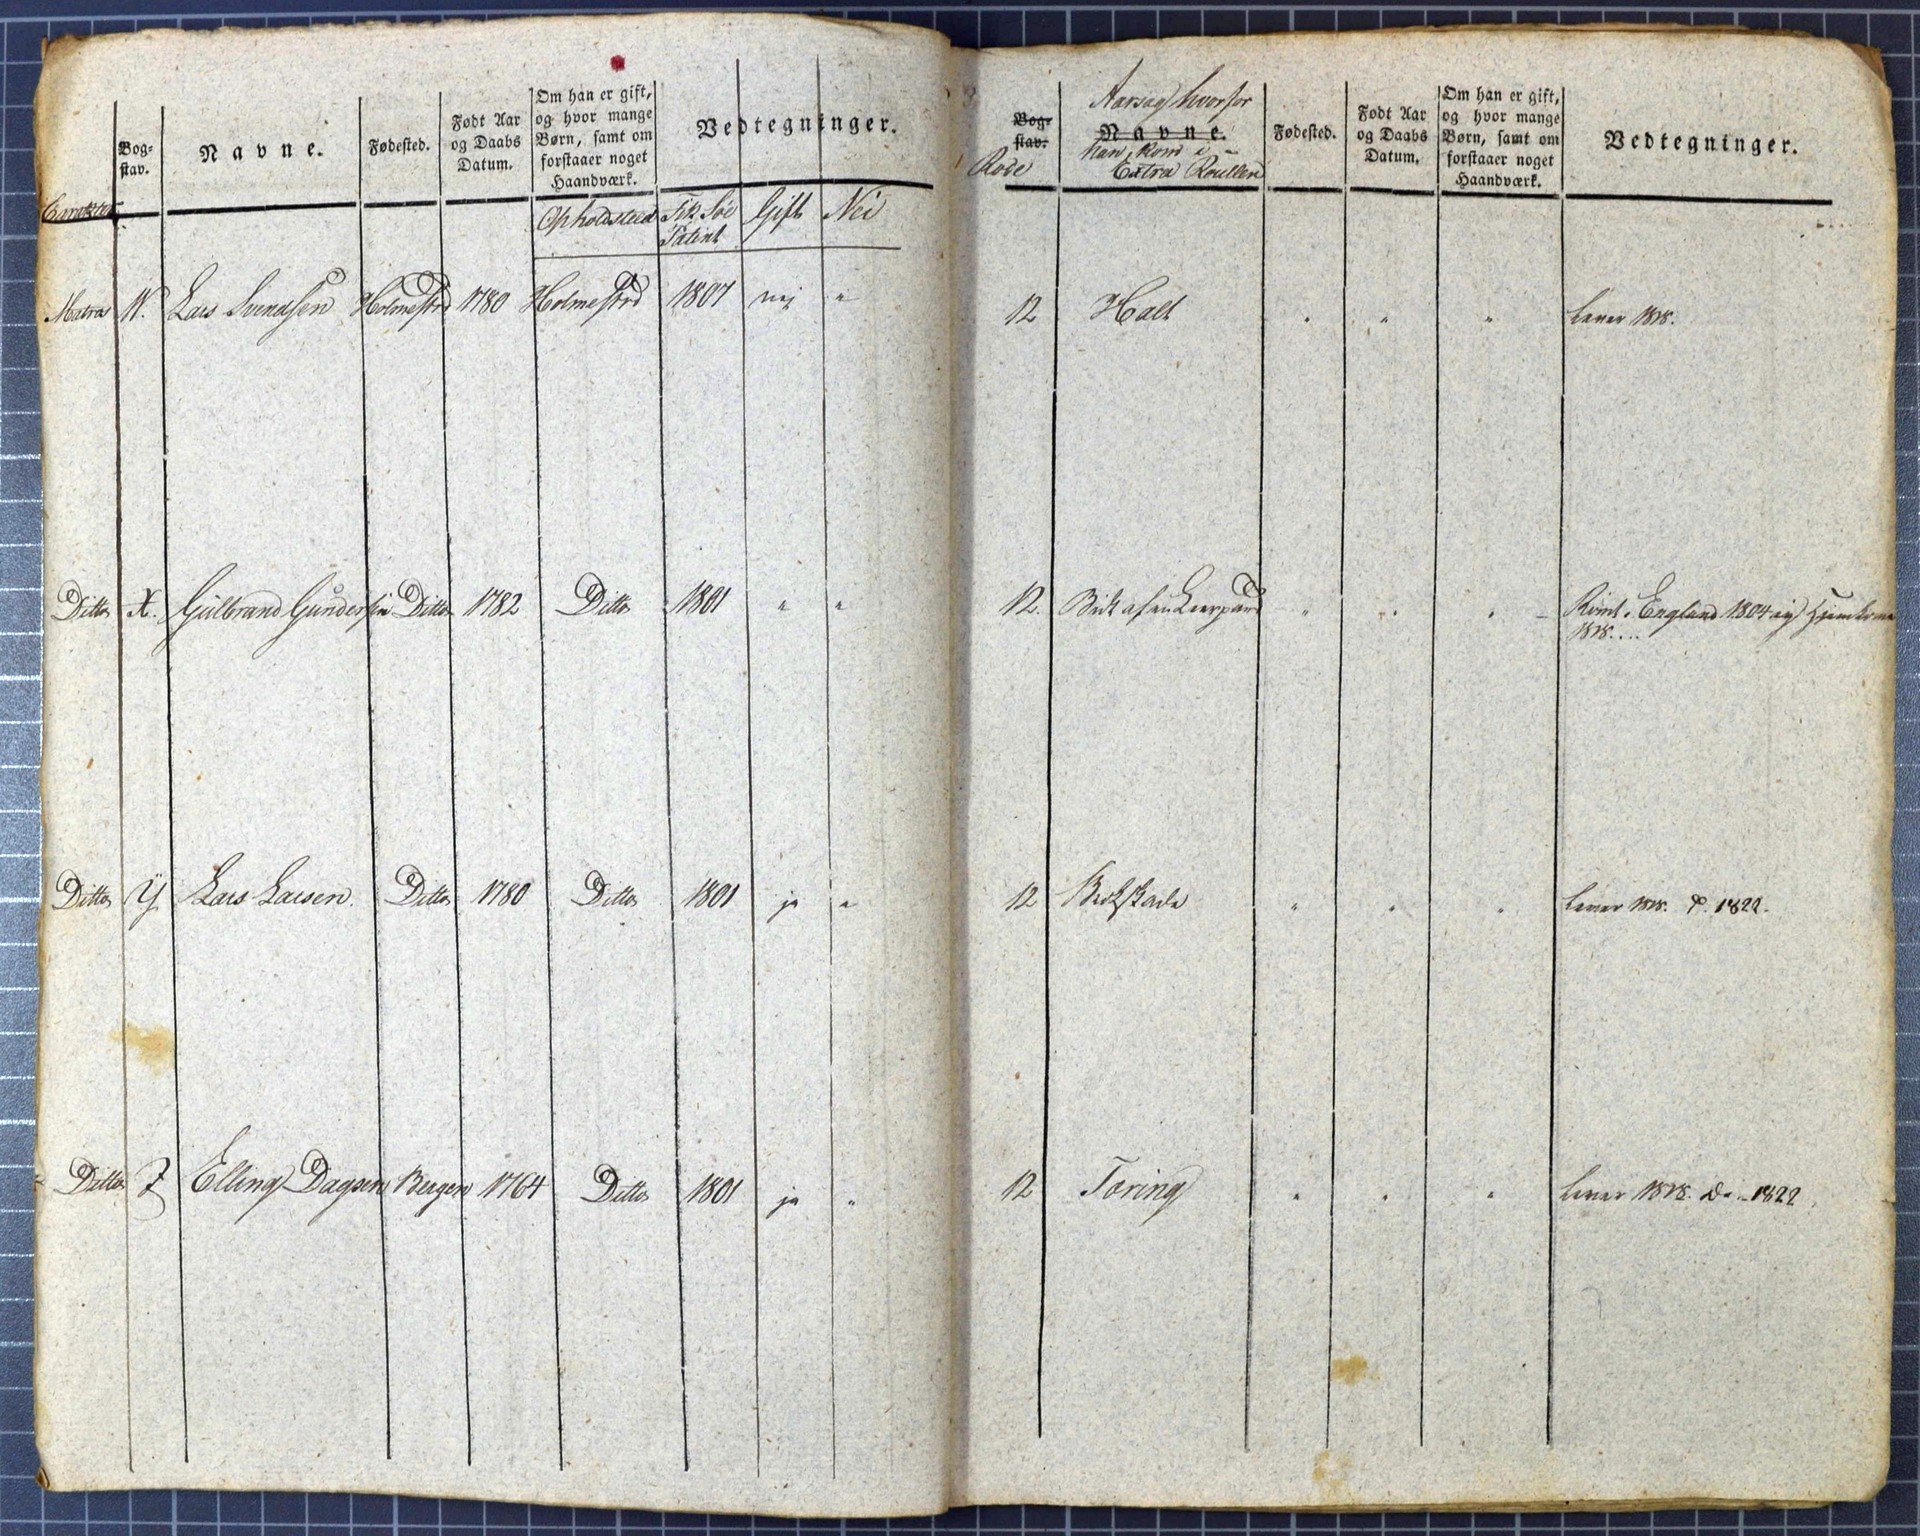 Bog-
stav.
Navne.
Fødested.
Født Aar
og Daabs
Datum.
Om han er gift,
og hvor mange
Børn, samt om
forstaaer noget
Haandværk.
Vedtegninger.
Opholdsted Fik Søe Patent Gift Nei
Matros W. Lars Svendsen Holmestrd 1780 Holmestrd 1807 nej "
Ditto X. Gulbrand Gundersen Ditto 1782 Ditto 1801 " "
Ditto Y Lars Larsen. Ditto 1780 Ditto 1801 ja "
Ditto Z Elling Dagsen Bergen 1764 Ditto 1801 ja "
Bog-
stav.
Rode
Aarsag hvorfor
Navne.
han kom i
Extra Roullen
Fødested.
Født Aar
og Daabs
Datum.
Om han er gift,
og hvor mange
Børn, samt om
forstaaer noget
Haandværk.
Vedtegninger.
12 Halt " " " Lever 1818.
12. Bidt af en " " " England 1804 ej Hjemkomen
1818....
12 Brokskade " " " Lever 1818. d. 1822.
12 Tæring " " " Lever 1818. d. 1822